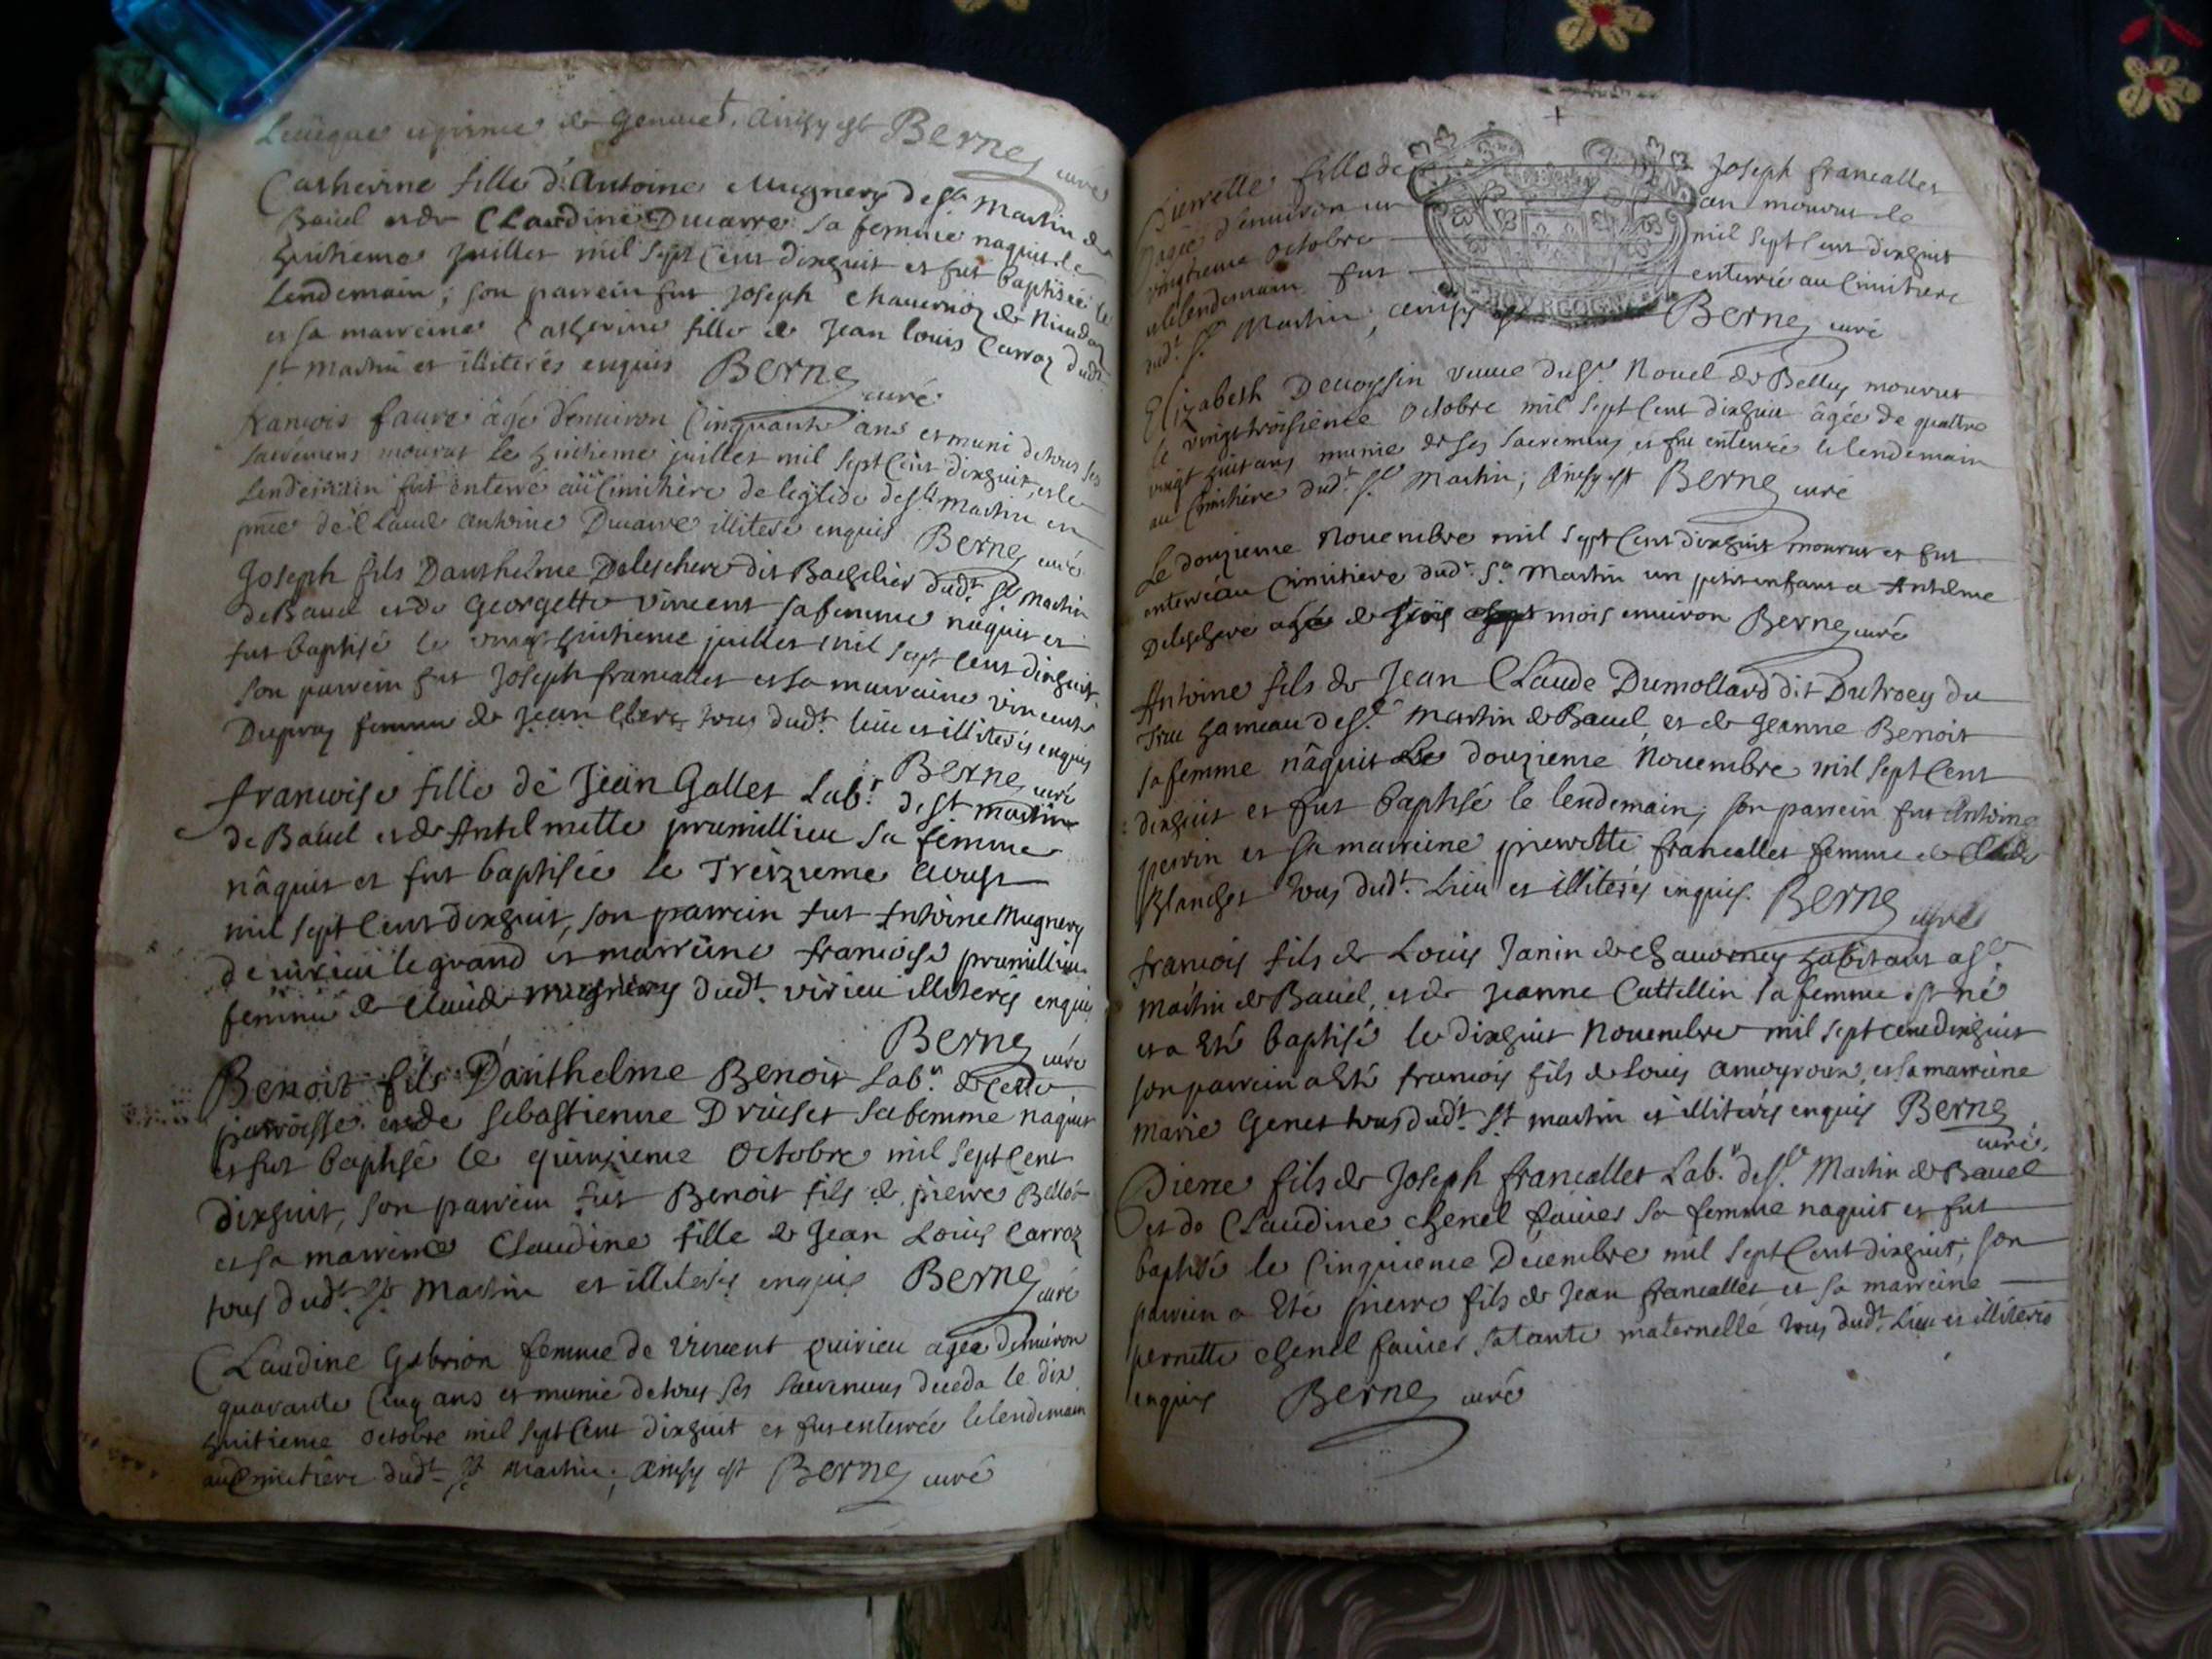 Leueque et prince de Geneue. Ainsy est Berne curé
Catherine fille d'Antoine Mugnery de st Martin de
Bauel et de Claudine Ducarre sa femme naquit le
huitieme juillet mil sept cent dixhuit et fut baptisée le
lendemain; son parrein fut Joseph Chauernoz de
et sa marreine Catherine fille de Jean Louis Carroz dudt
st Martin et illiterés enquis Berne curé
francois faure âgé d'enuiron Cinquante ans et muni de tous ses
sacremens mourut le huitieme juillet mil sept Cent dixhuit, et le
lendemain fut enterré au Cimitière de leglise de st Martin en
pnce de Claude Antoine Ducarre illiteré enquis Berne curé
Joseph fils Danthelme Delescherre dit Bachelier dudt st Martin
de Bauel et de Georgette vincent sa femme naquit et
fut baptisé le vingt huitieme juillet mil sept cent dixhuit
son parrein fut Joseph francallet et sa marraine vincente
Dupray femme de Jean Clerc tous dudt lieu et illiterés enquis
Berne curé
francoise fille de Jean Gallet Labr de st Martin
de Bauel et de Antelmette prumillieu sa femme
nâquit et fut baptisée le Treizieme Aoust
mil sept Cent dixhuit, son parrein fut Antoine Mugnery
de virieu le grand et marreine francoise prumillieu
femme de Claude Mugniery dudt virieu illiterés enquis
Berne curé
Benoit fils D'anthelme Benoit Labr de cette
parroisse et de Sebastienne Druiset sa femme naquit
et fut baptisé le quinzieme Octobre mil sept Cent
dixhuit, son parrein fut Benoit fils de pierre
et sa marreine Claudine fille de Jean Louis Carroz
tous dudt St Martin et illiterés enquis Berne curé
Claudine Gabrion femme de vincent quirieu agée denuiron
quarante Cinq ans et munie de tous ses sacremens deceda le dix
huitieme octobre mil sept Cent dixhuit et fut enterrée le lendemain
au Cimitière dudt St Martin; Ainsy est Berne curé
Pierrette fille de Joseph francallet
agée d'enuiron un an mourut le
vingtieme octobre mil sept cent dixhuit
et le lendemain fut enterrée au Cimitiere
dudt st Martin, ainsy est Berne curé
Elizabeth Deuoyssin veuue du sr Nouel de Belley mourut
le vingt troisieme octobre mil sept Cent dixhuit âgée de quattre
vingt huit ans munie de ses sacremens et fut enterrée le lendemain
au Cimitière dudt st Martin; Ainsy est Berne curé
Le douzieme Nouembre mil sept Cent dixhuit mourut et fut
enterré au Cimitiere dudt st Martin un petit enfant a Antelme
Delescherre agé de mois enuiron Berne curé
Antoine fils de Jean Claude Dumollard dit Dutroey du
Truc hameau de st Martin de Bauel, et de Jeanne Benoit
sa femme nâquit Le douzieme Nouembre mil sept Cent
dixhuit et fut baptisé le lendemain; son parrein fut Antoine
perrin et sa marreine pierrette francallet femme de Claude
Blanchet tous dudt. Lieu et illiterés enquis. Berne curé
francois fils de Louis Janin de habitant a st
Martin de Bauel, et de Jeanne Cattellin sa femme est né
et a Eté baptisé le dixhuit Nouembre mil sept cent dixhuit
son parrein a Eté francois fils de Louis et sa marreine
Marie Genet tous dudt. st martin et illiterés enquis Berne
curé.
Pierre fils de Joseph francallet Labr. de st. Martin de Bauel
et de Claudine chenel fauier sa femme naquit et fut
baptisé le Cinquieme Decembre mil sept Cent dixhuit, son
parrein a Eté pierre fils de Jean francallet et sa marreine
pernette chenel fauier sa tante maternelle tous dudt. Lieu et illiterés
enquis Berne curé